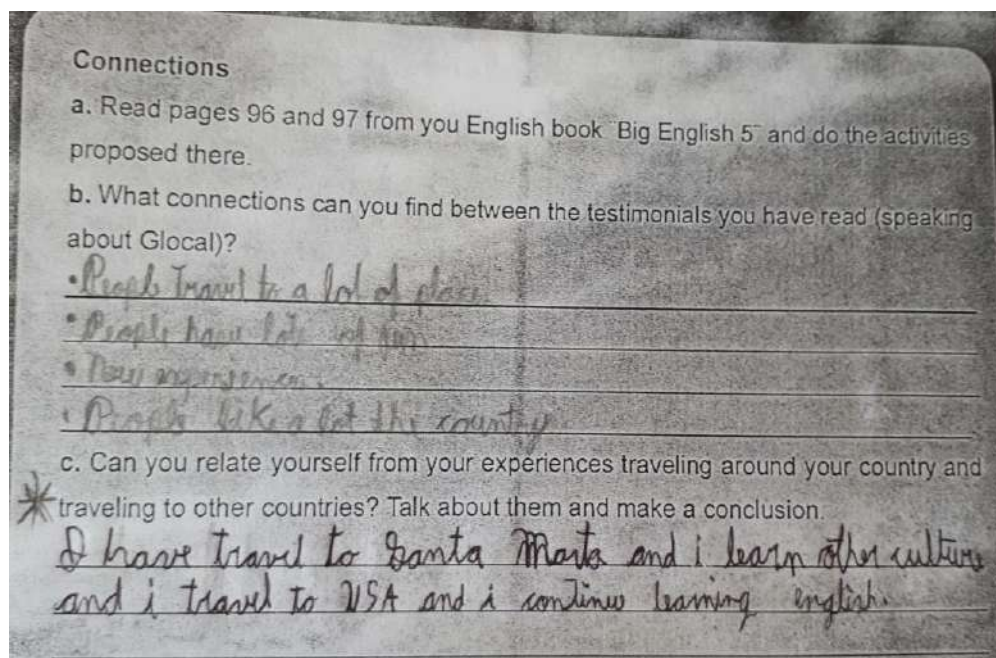 Connections
a. Read pages 96 and 97 from you English book ¨Big English 5¨ and do the activities
proposed there.
b. What connections can you find between the testimonials you have read (speaking
about Glocal)?
• People Travel to a lot of places
• People have lots of fun
• New experiences.
• People like a lot the country
c. Can you relate yourself from your experiences traveling around your country and
traveling to other countries? Talk about them and make a conclusion.
I have travel to Santa Marta and i learn other culture
and i travel to USA and i continue learning english.